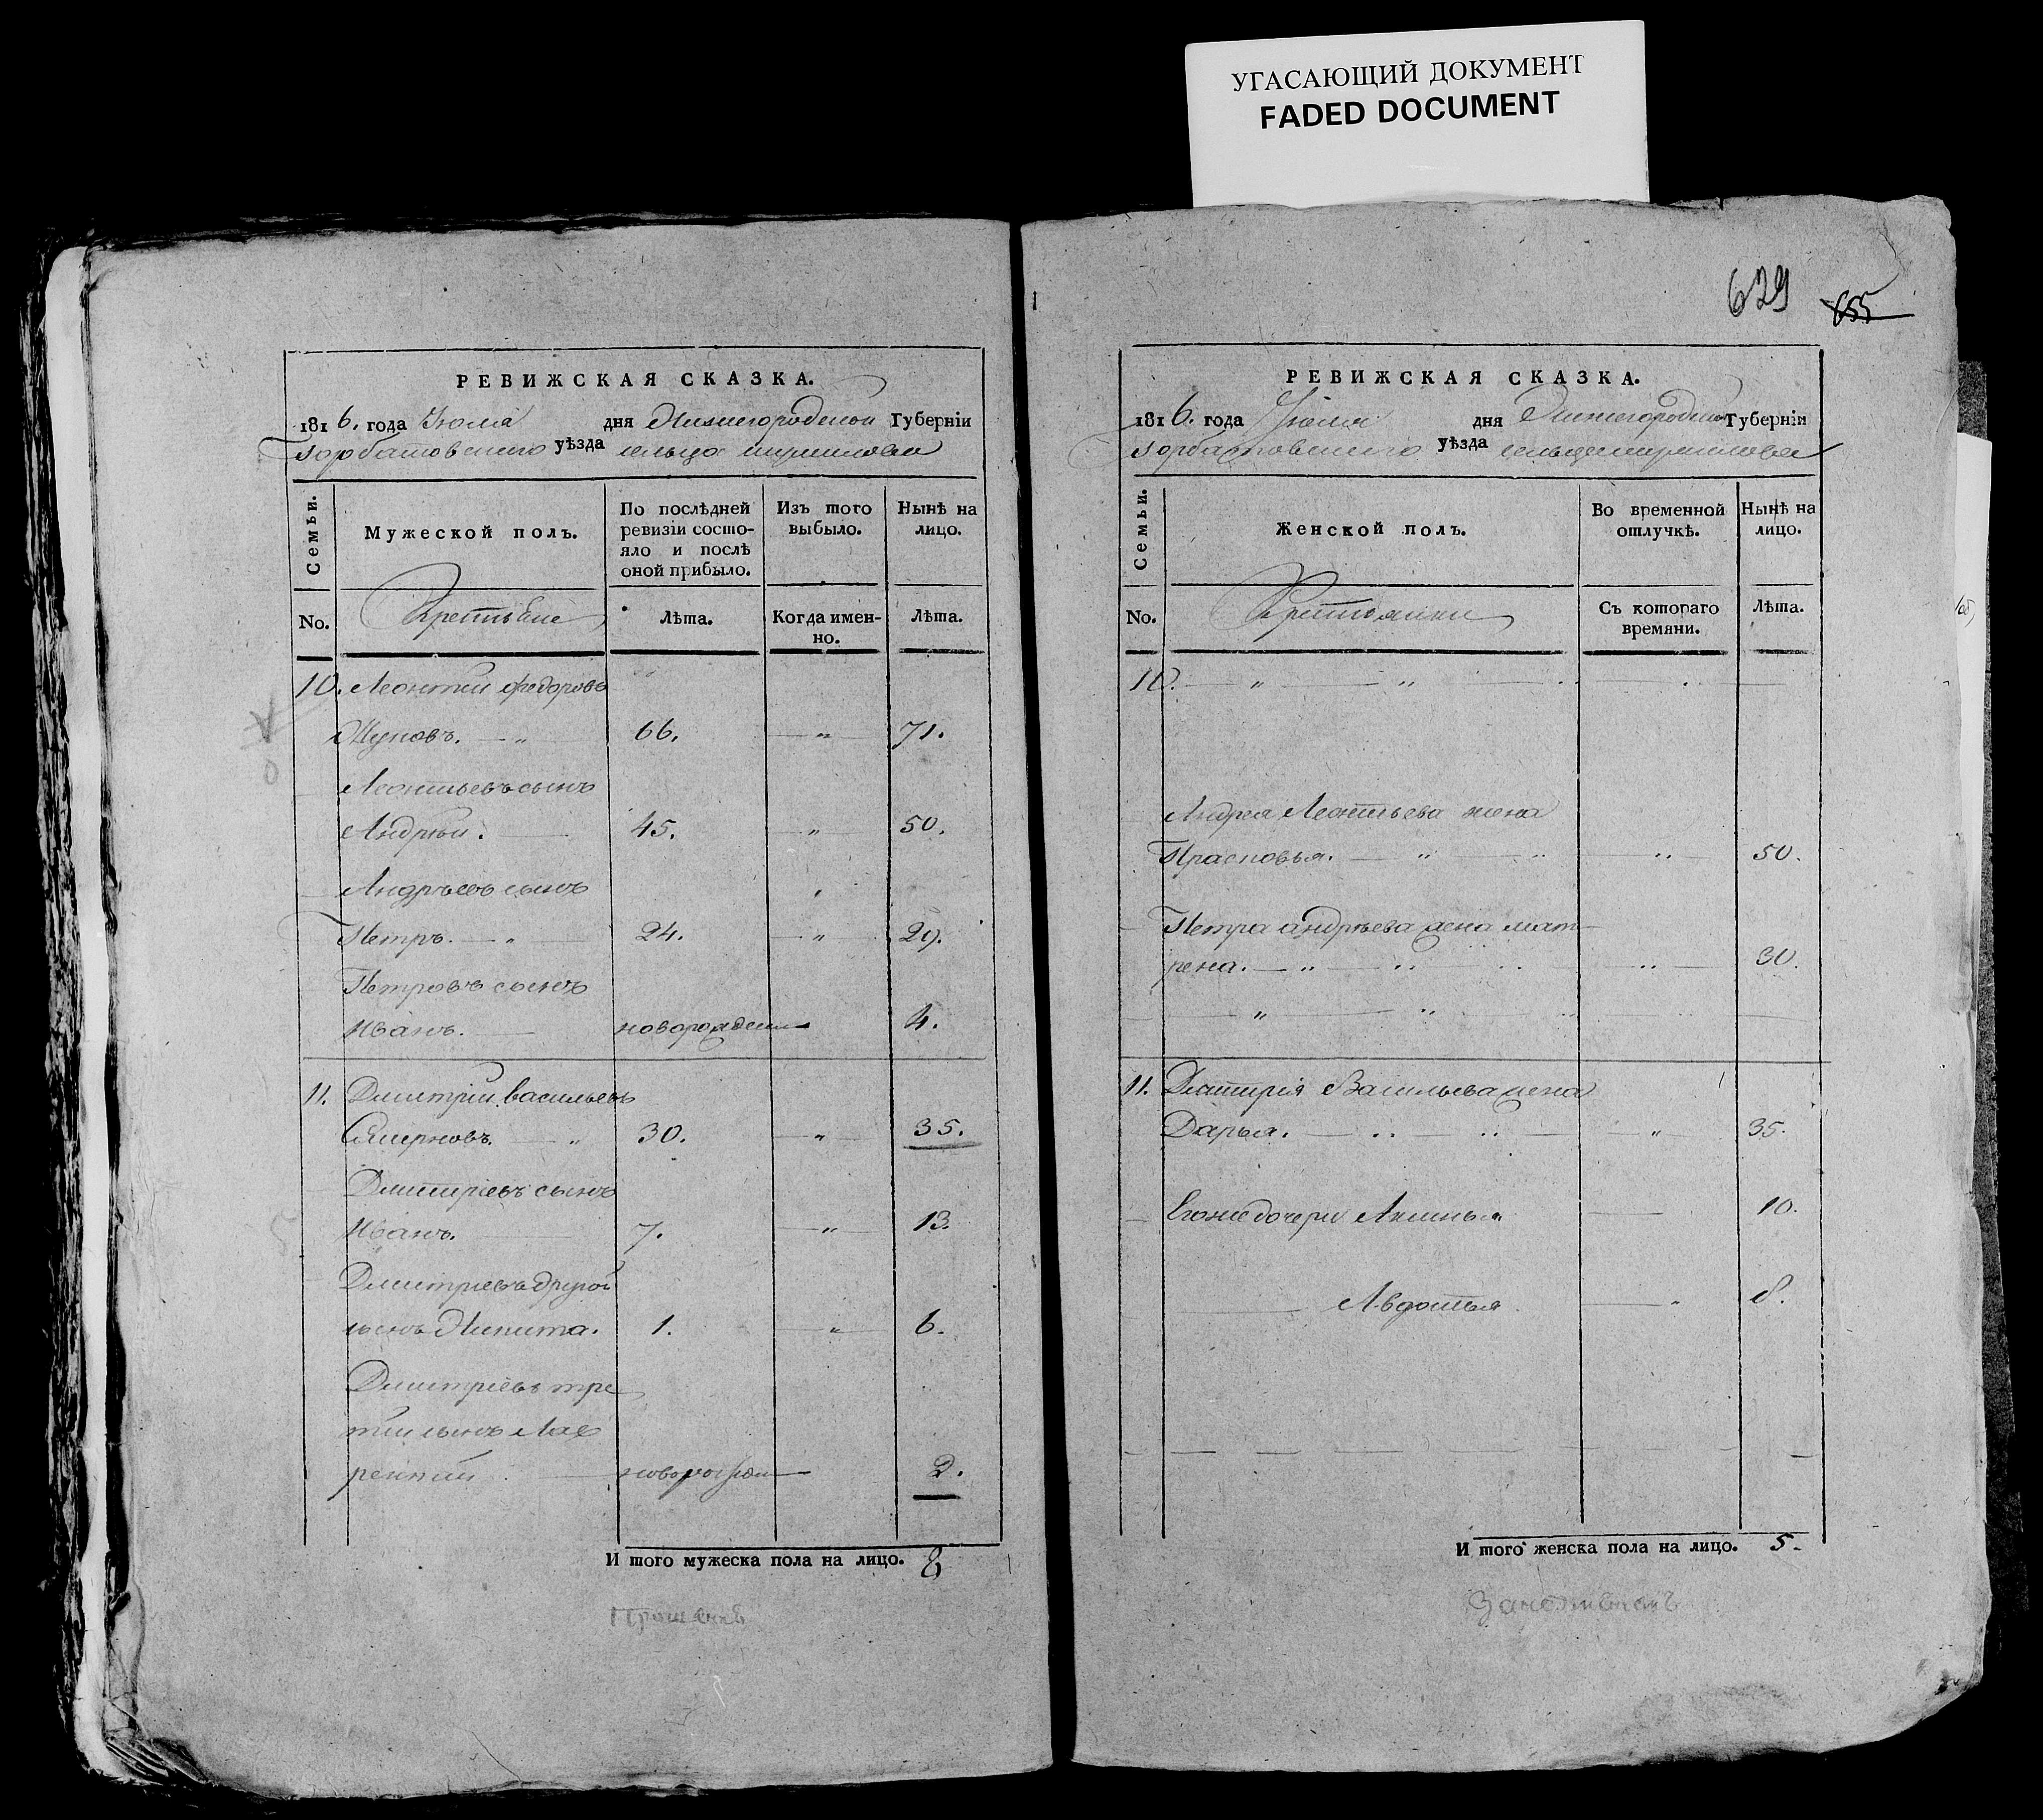 УГАСАЮЩИЙ ДОКУМЕНТ
FADED DOCUMENT
629 655
РЕВИЖСКАЯ СКАЗКА.
1816. года Июля дня Нижегородской Губернїи
Горбатовского уѣзда сельца
Семьи.
Мужеской полъ.
По послѣдней
ревизїи состо-
яло и послѣ
оной прибыло.
Изъ того
выбыло.
Нынѣ на
лицо.
No.
Крестьяне
Лѣта.
Когда имен-
но.
Лѣта.
10. Леонтий Федоровъ
66. 71.
Леонтьевъ сынъ
Андрѣй. 45. 50.
Андрѣевъ сынъ
Петръ. 24. 29.
Петровъ сынъ
Иванъ. новорожден 4.
11. Дмитрїй васильевъ
Смирновъ. 30. 35.
Дмитрїевъ сынъ
Иванъ. 7. 13.
Дмитрїевъ другой
сынъ Никита. 1. 6.
Дмитрїевъ тре
тїй сынъ Лав
рентий 2.
И того мужеска пола на лицо. 8
РЕВИЖСКАЯ СКАЗКА.
1816. года Июля дня Нижегородской Губернїи
Горбатовского уѣзда сельца
Семьи.
Женской полъ.
Во временной
отлучкѣ.
Нынѣ на
лицо.
No.
Крестьянки
Съ котораго
времяни.
Лѣта.
10.
Андрея Леонтьева жена
Прасковья. 50.
Петра андрѣева жена мат
рена. 30.
11. Дмитрия Васильева жена
Дарья. 35.
Егоже дочери Аксинья 10.
Авдотья 8.
И того женска пола на лицо. 5.